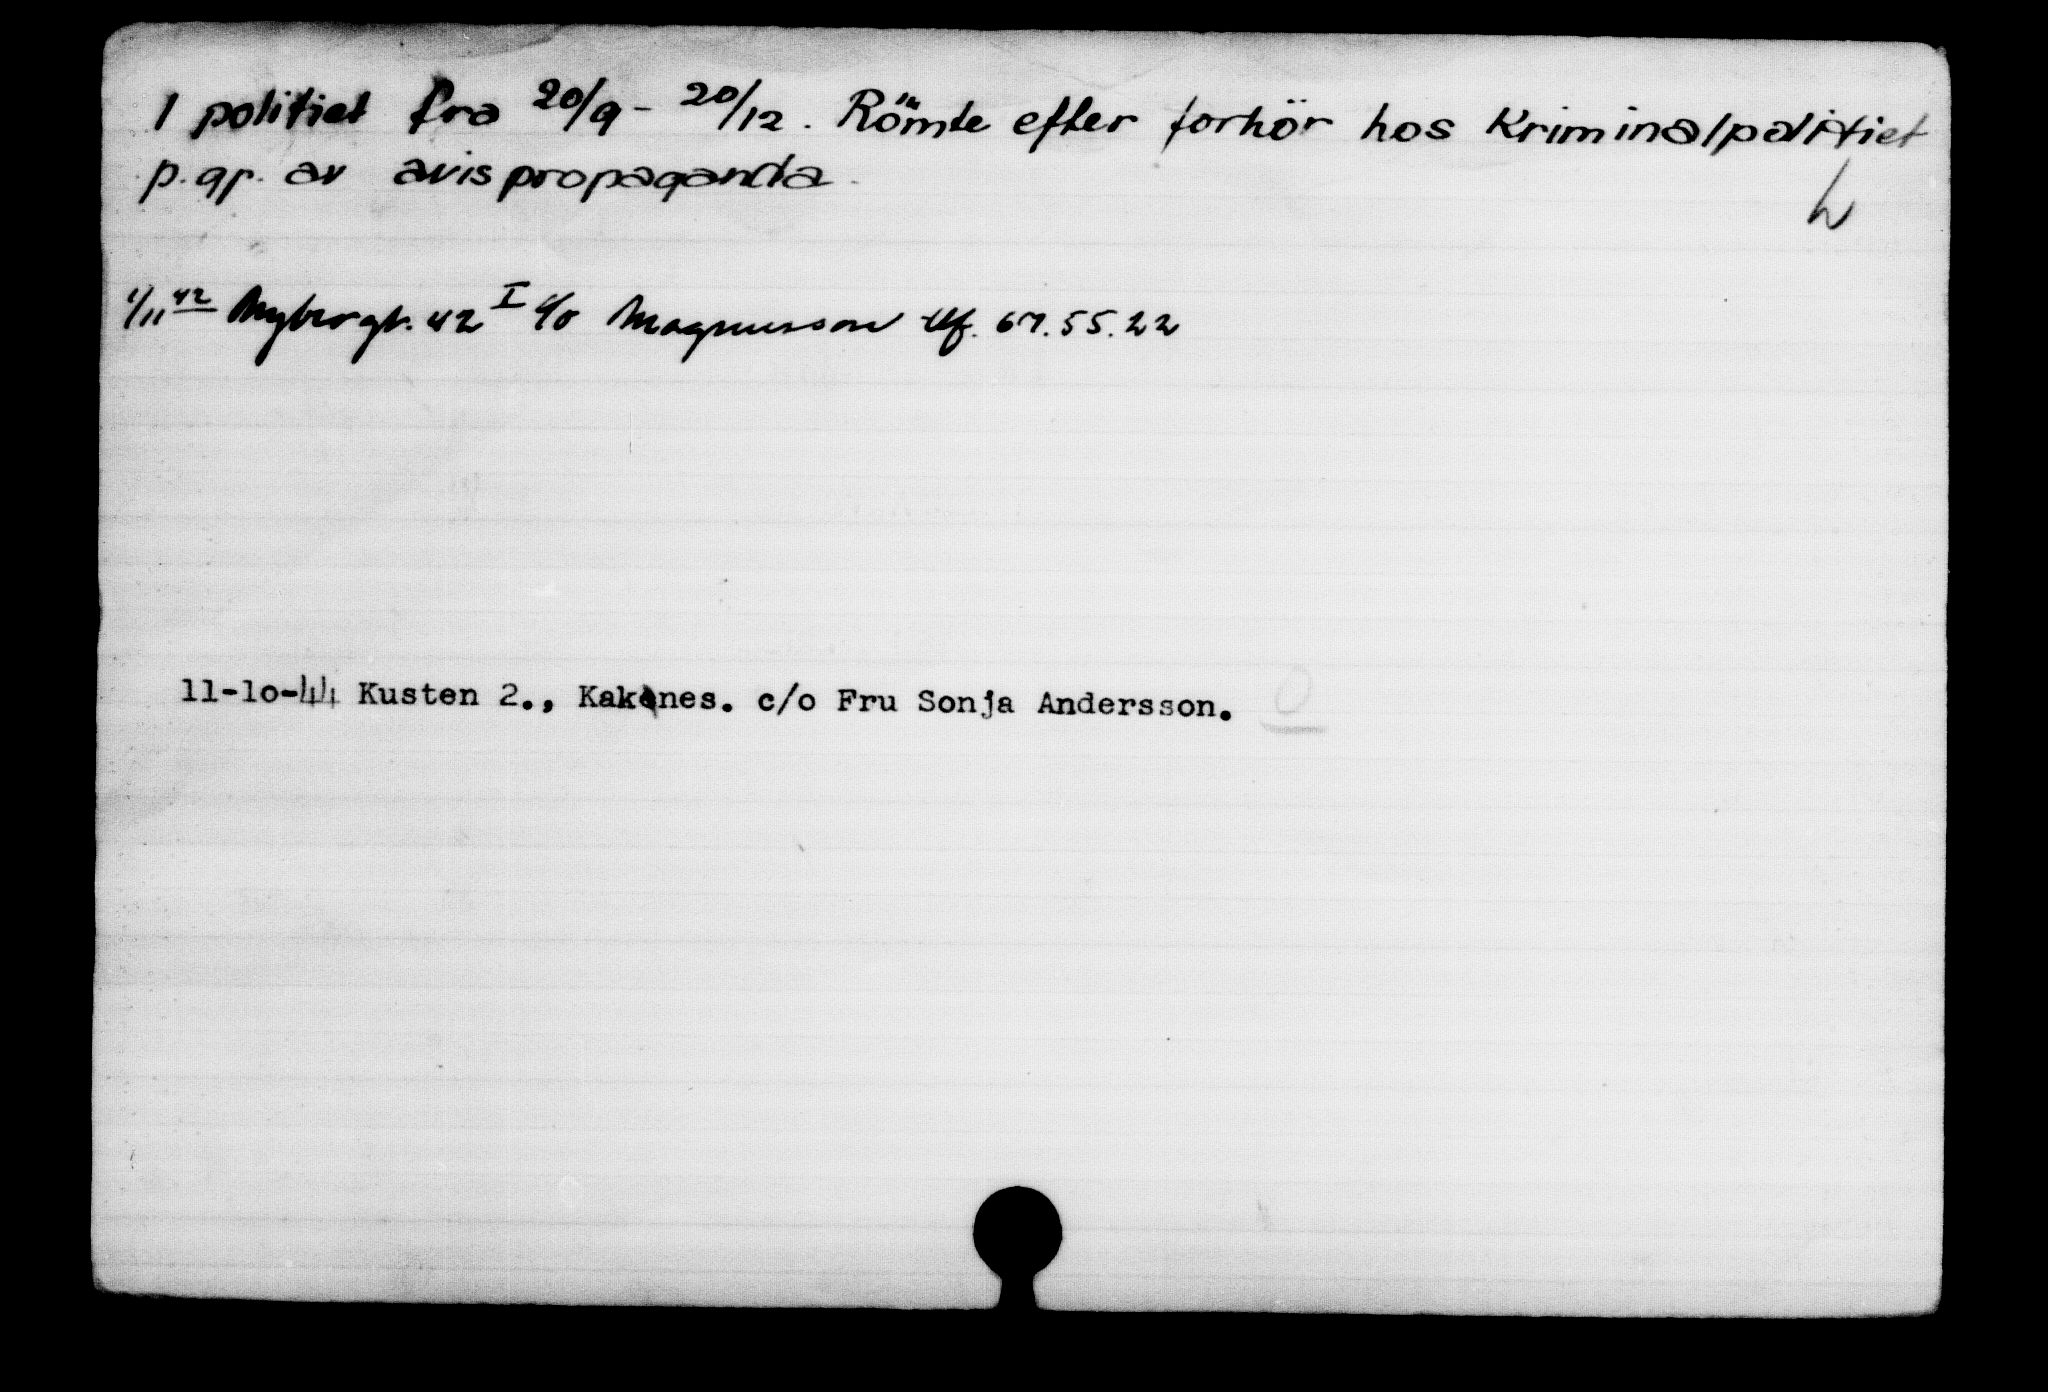 I politiet fra 20/9 - 20/12. Römte efter forhör hos Kriminalpolitiet
p.gr. av avispropaganda.
1/11 42 Nybergt. 42 I c/o Magnusson tlf. 67.55.22
11-1o-44 Kusten 2., Kaknes. c/o Fru Sonja Andersson.